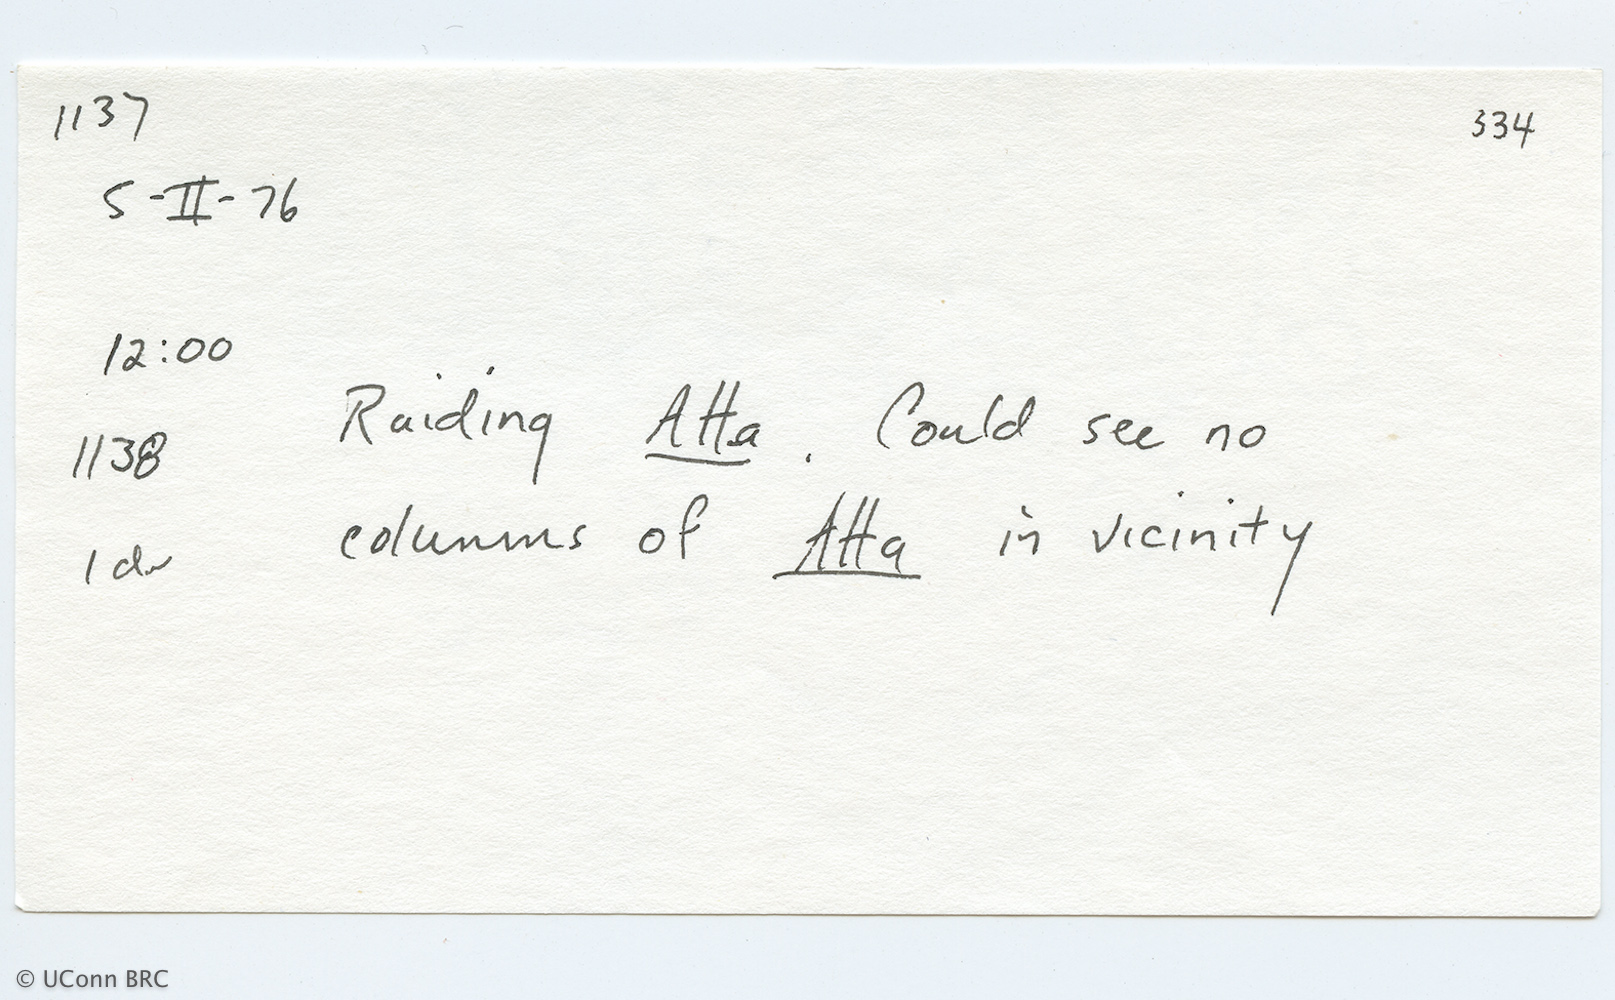 1137
334
5-II-76
12:00
Raiding Atta. Could see no
1138
columns of Atta in vicinity
1 dr
© UConn BRC